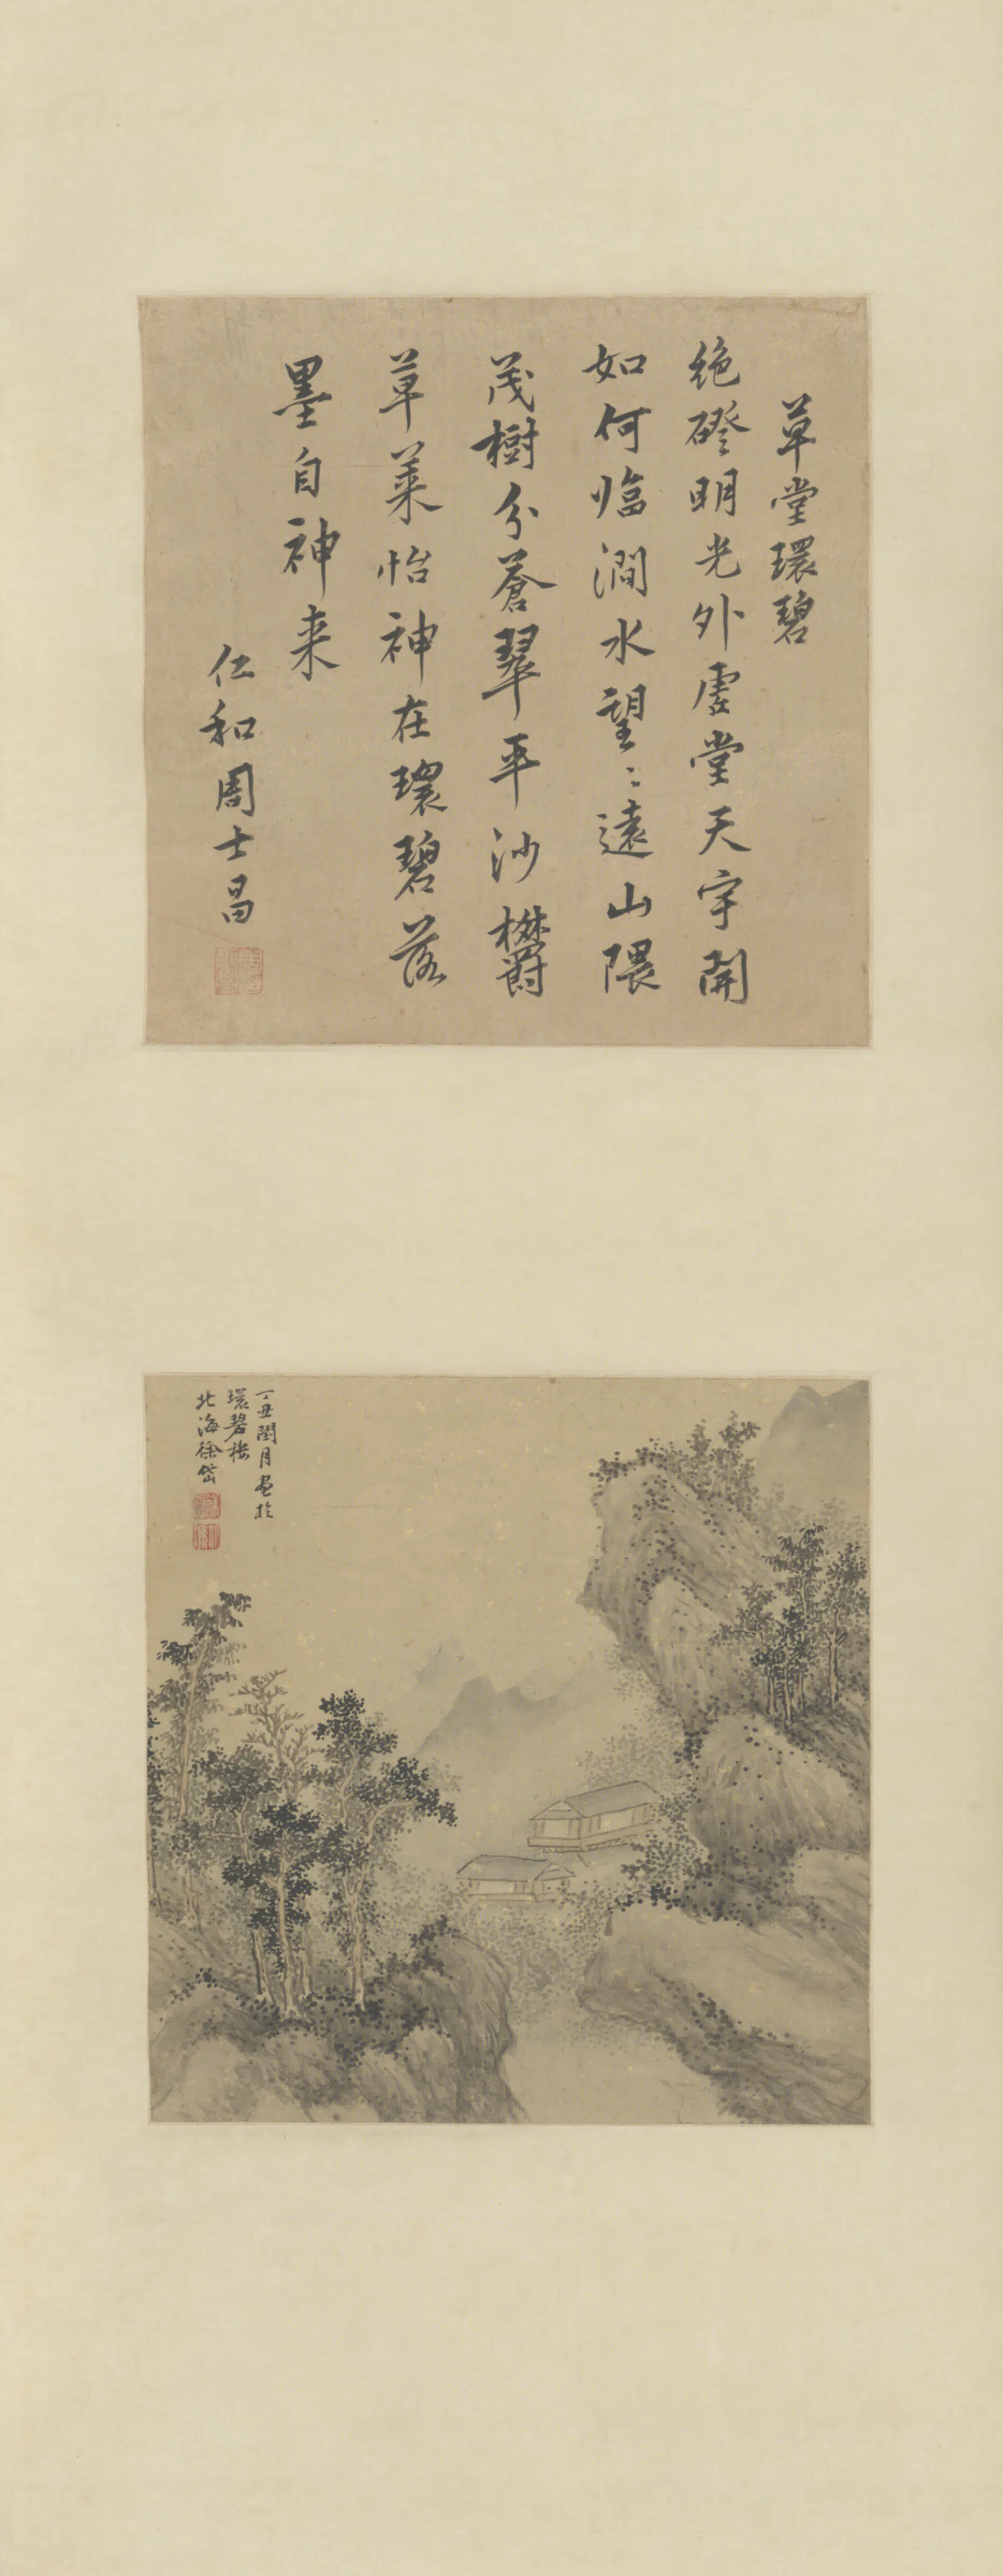 草堂環碧
絶磴明光外虛堂天宇開
如何臨澗水望〻遠山隈
茂樹分蒼翠平沙欝
草萊怡神在環碧落
墨自神来
仁和周士昌
丁丑閏月画於
環碧楼
北海徐岱